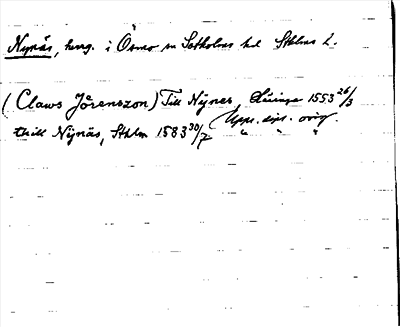 Nynäs, herrg. i Ösmo sn Sotholms hd Sthlms l.
(Claws Jörenszon) Till Nÿnes, Düinge 1553 26/3
Upps. dipl. orig.
thill Nÿnäs, Sthlm 1583 30/7 " " "